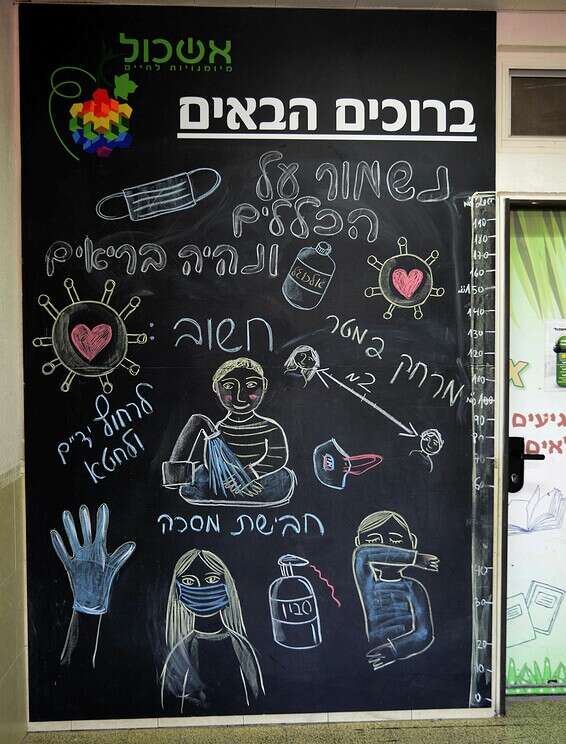 אשכול
מיומנויות לחיים
ברוכים הבאים
נשמור על
הכללים
ונהיה בריאים
אלכוגל
חשוב :
מרחק במטר
2מ
לרחוץ ידים
ולחטא
חבישת מסכה
סבון
190
180
170
160
150
140
130
110
100
90
80
70
60
40
30
20
10
0
גיעים